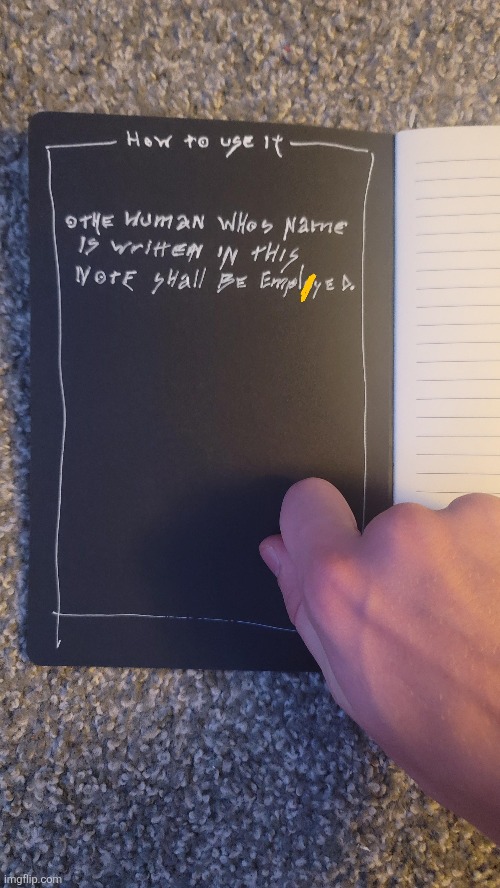 How to use It
○THE HUMAN WHOs Name
Is WrittEN IN tHIS
NOTE sHall BE EmployED.
imgflip.com